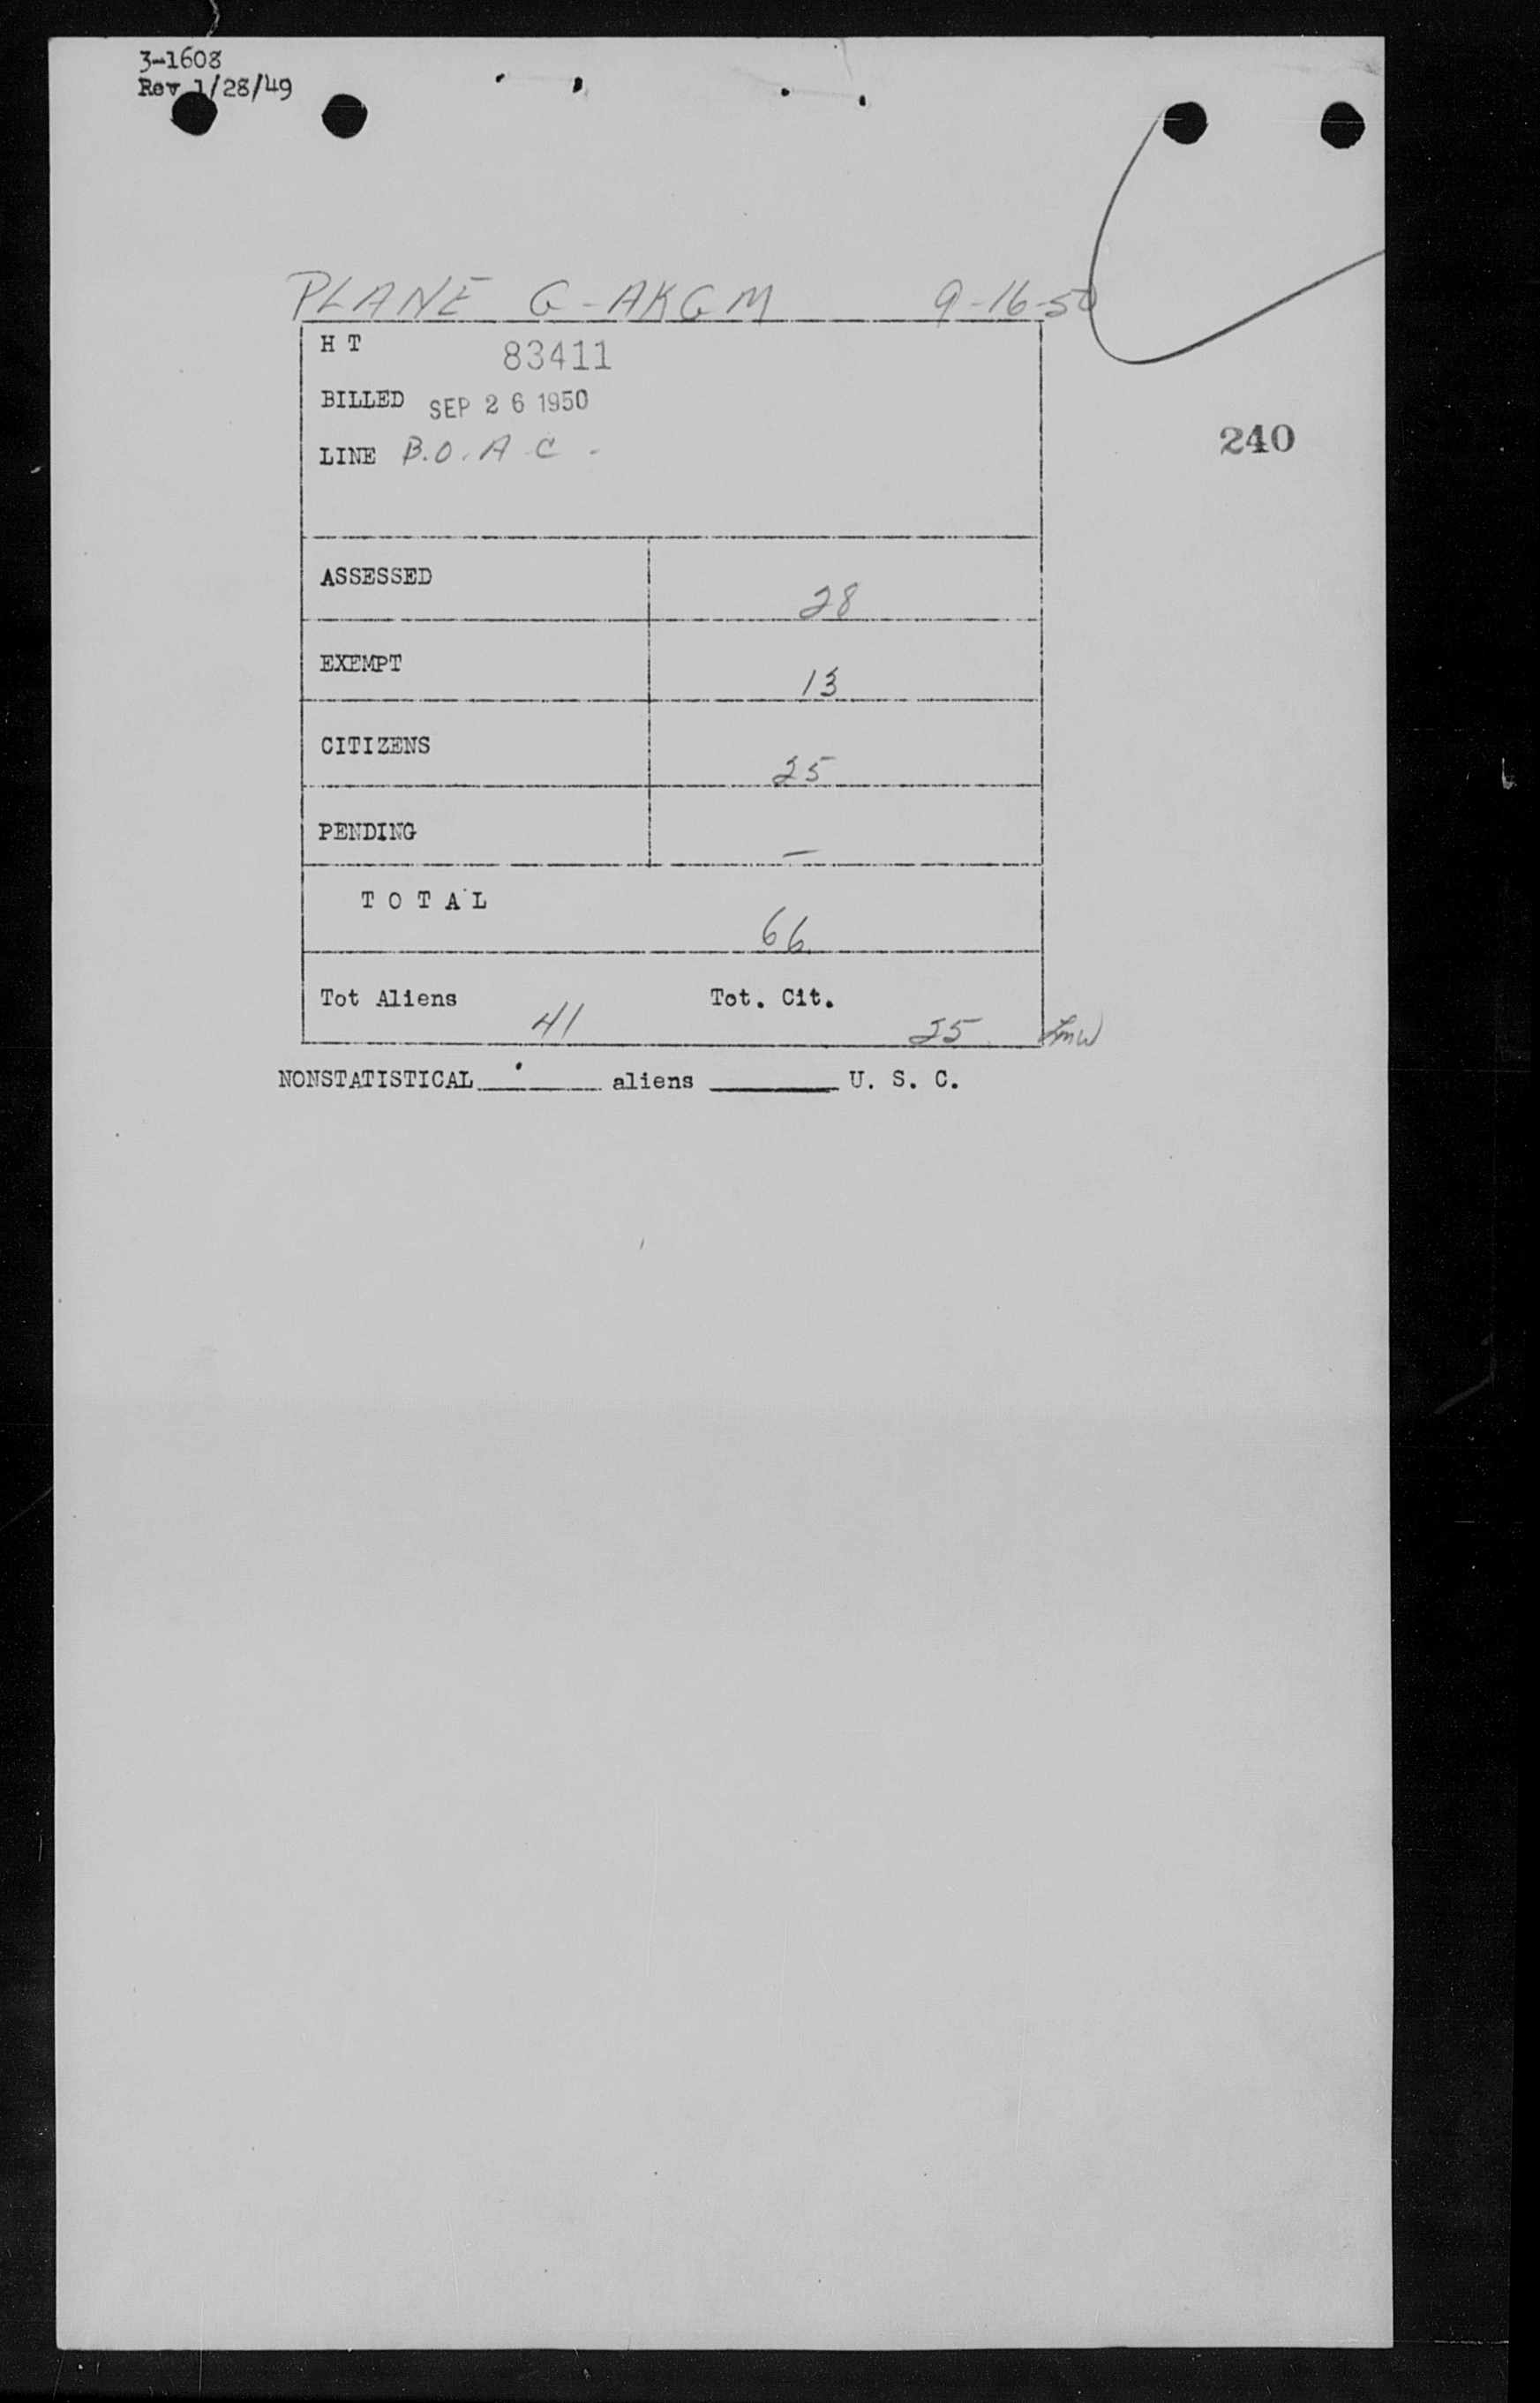 3-1608
Rev 1/28/49
PLANE G-AKGM 9-16-50
H T 83411
BILLED SEP 26 1950
240
LINE B.O.A.C.
ASSESSED 28
EXEMPT 13
CITIZENS 25
PENDING —
TOTAL 66
Tot Aliens 41 Tot. Cit. 25
NONSTATISTICAL ______ aliens ______ U. S. C.